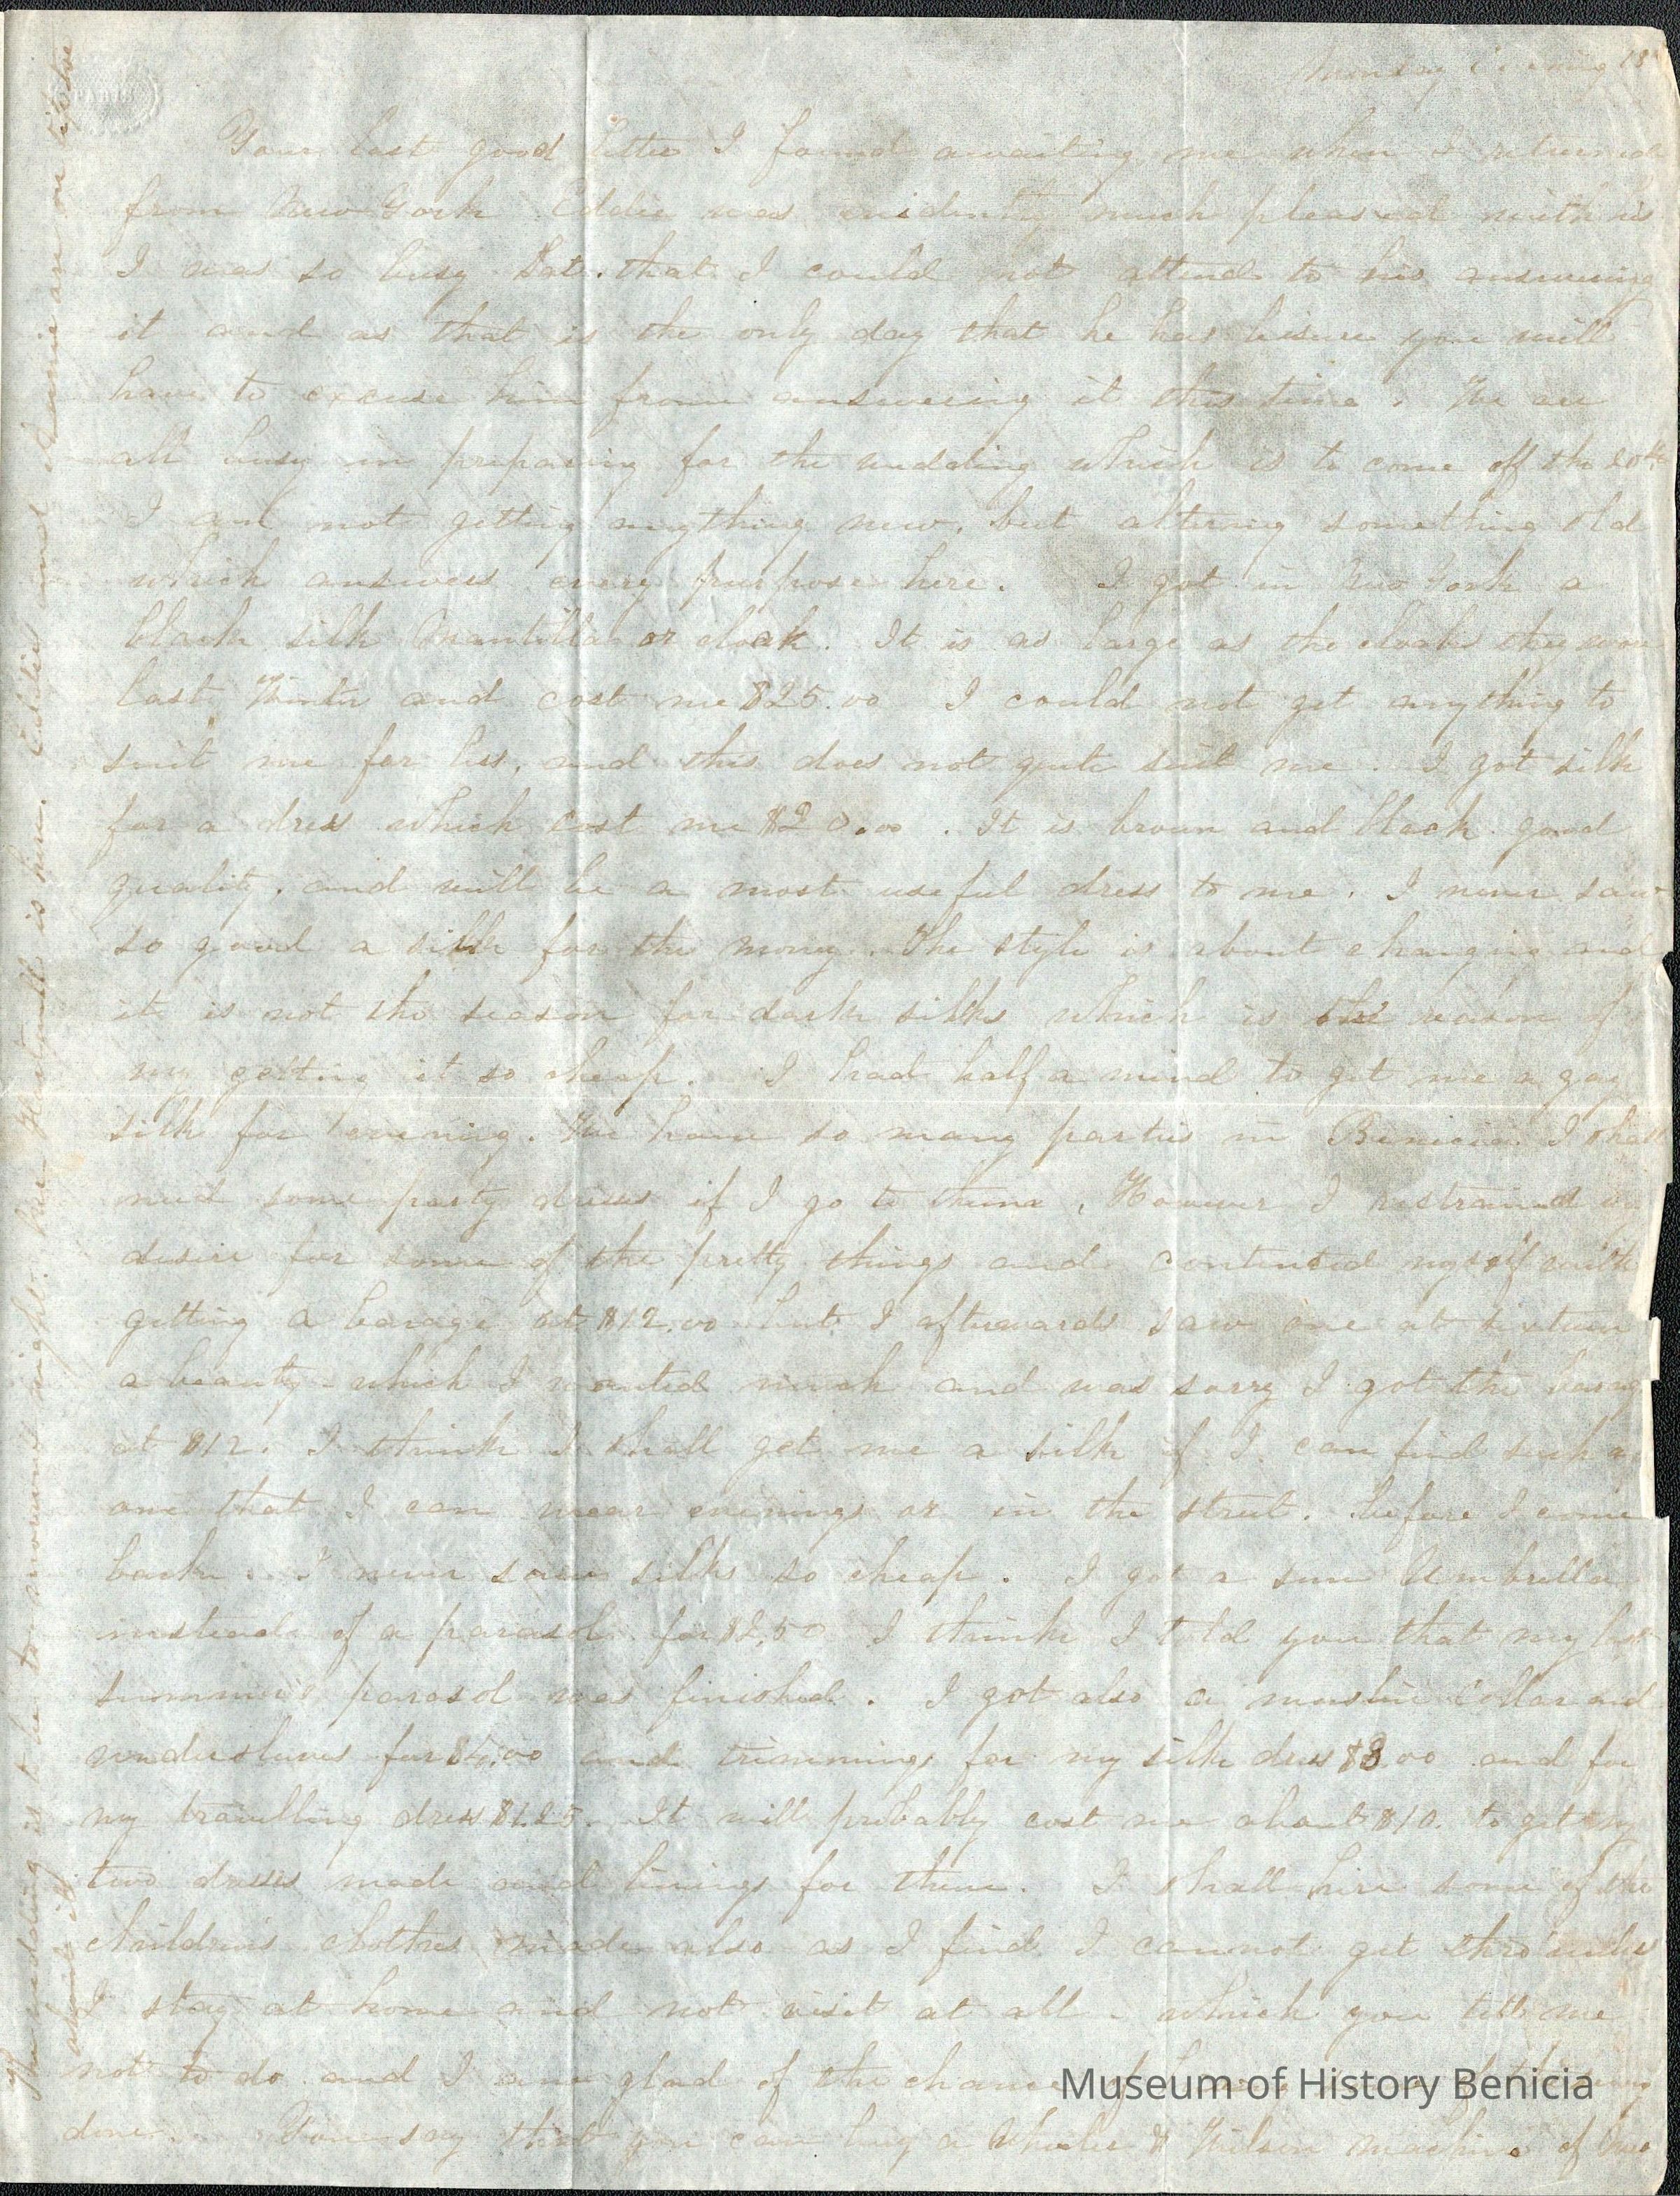 Monday Evening 18th
Your last good letter I found awaiting me when I returned
from New York Eddie was evidently much pleased with his
I was so busy Sat. that I could not attend to his answering
it and as that is the only day that he has leisure you will
have to excuse him from answering it this time. We are
all busy in preparing for the wedding which is to come off the 20th
I am not getting anything new, but altering something old
which answers every purpose here. I got in New York a
black silk Mantilla or cloak. It is as large as the cloaks they wore
last Winter and cost me $25.00 I could not get anything to
suit me for less, and this does not quite suit me. I got silk
for a dress which cost me $20.00. It is brown and black good
quality, and will be a most useful dress to me. I never saw
so good a silk for the money. The style is about changing and
it is not the season for dark silks which is the reason of
my getting it so cheap. I had half a mind to get me a gay
silk for evening. We have so many parties in Benicia I shall
need some party dresses if I go to them. However I restrained my
desire for some of the pretty things and contented myself with
getting a barage at $12.00 but I afterwards saw one at sixteen
a beauty which I wanted much and was sorry I got the barage
at $12. I think I shall get me a silk if I can find such a
one that I can wear evenings or in the street. before I come
back. I never saw silks so cheap. I got a sun Umbrella
instead of a parasol for $2.50 I think I told you that my last
summers parasol was finished. I got also a muslin Collar and
undersleeves for $5.00 and trimmings for my silk dress $3.00 and for
my travelling dress $1.25. It will probably cost me about $10. to get my
two dresses made and linings for them. I shall hire some of the
children's clothes made also as I find I cannot get thro' unless
I stay at home and not visit at all - which you tell me
not to do and I am glad of the chance of
done. You say that you can buy a Wheeler & Wilson machine of
The wedding is to be tomorrow night. Mr is here. Eddie and are on tiptoe
about it
Museum of History Benicia
PARIS